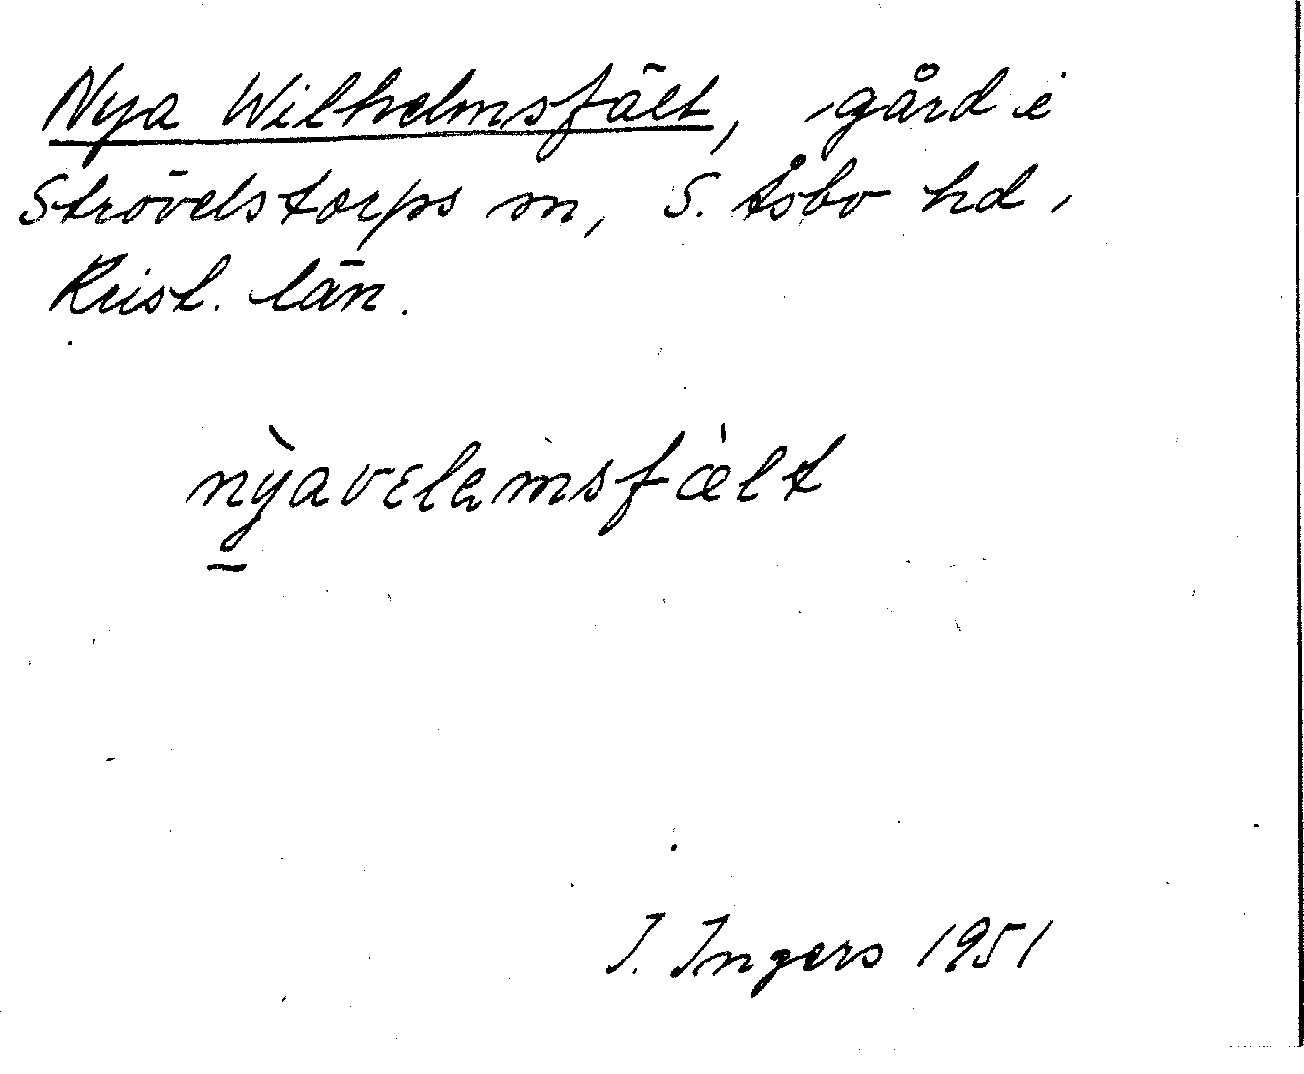 Nya Wilhelmsfält, gård i
Strövelstorps sn, S. Åsbo hd,
Krist. län.
nỳavɛləmsfæ̀lt
I. Ingers 1951